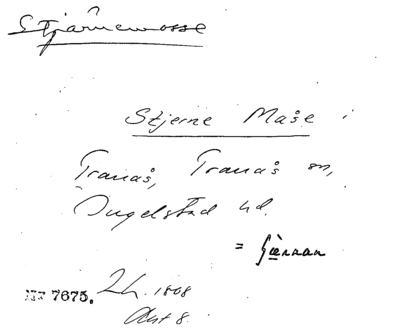 Stjärnemosse
Stjerne Måse i
Tranås, Tranås sn,
Ingelstad hd.
= Gärnaan
Nr 7675. Lh. 1808
Akt 8.